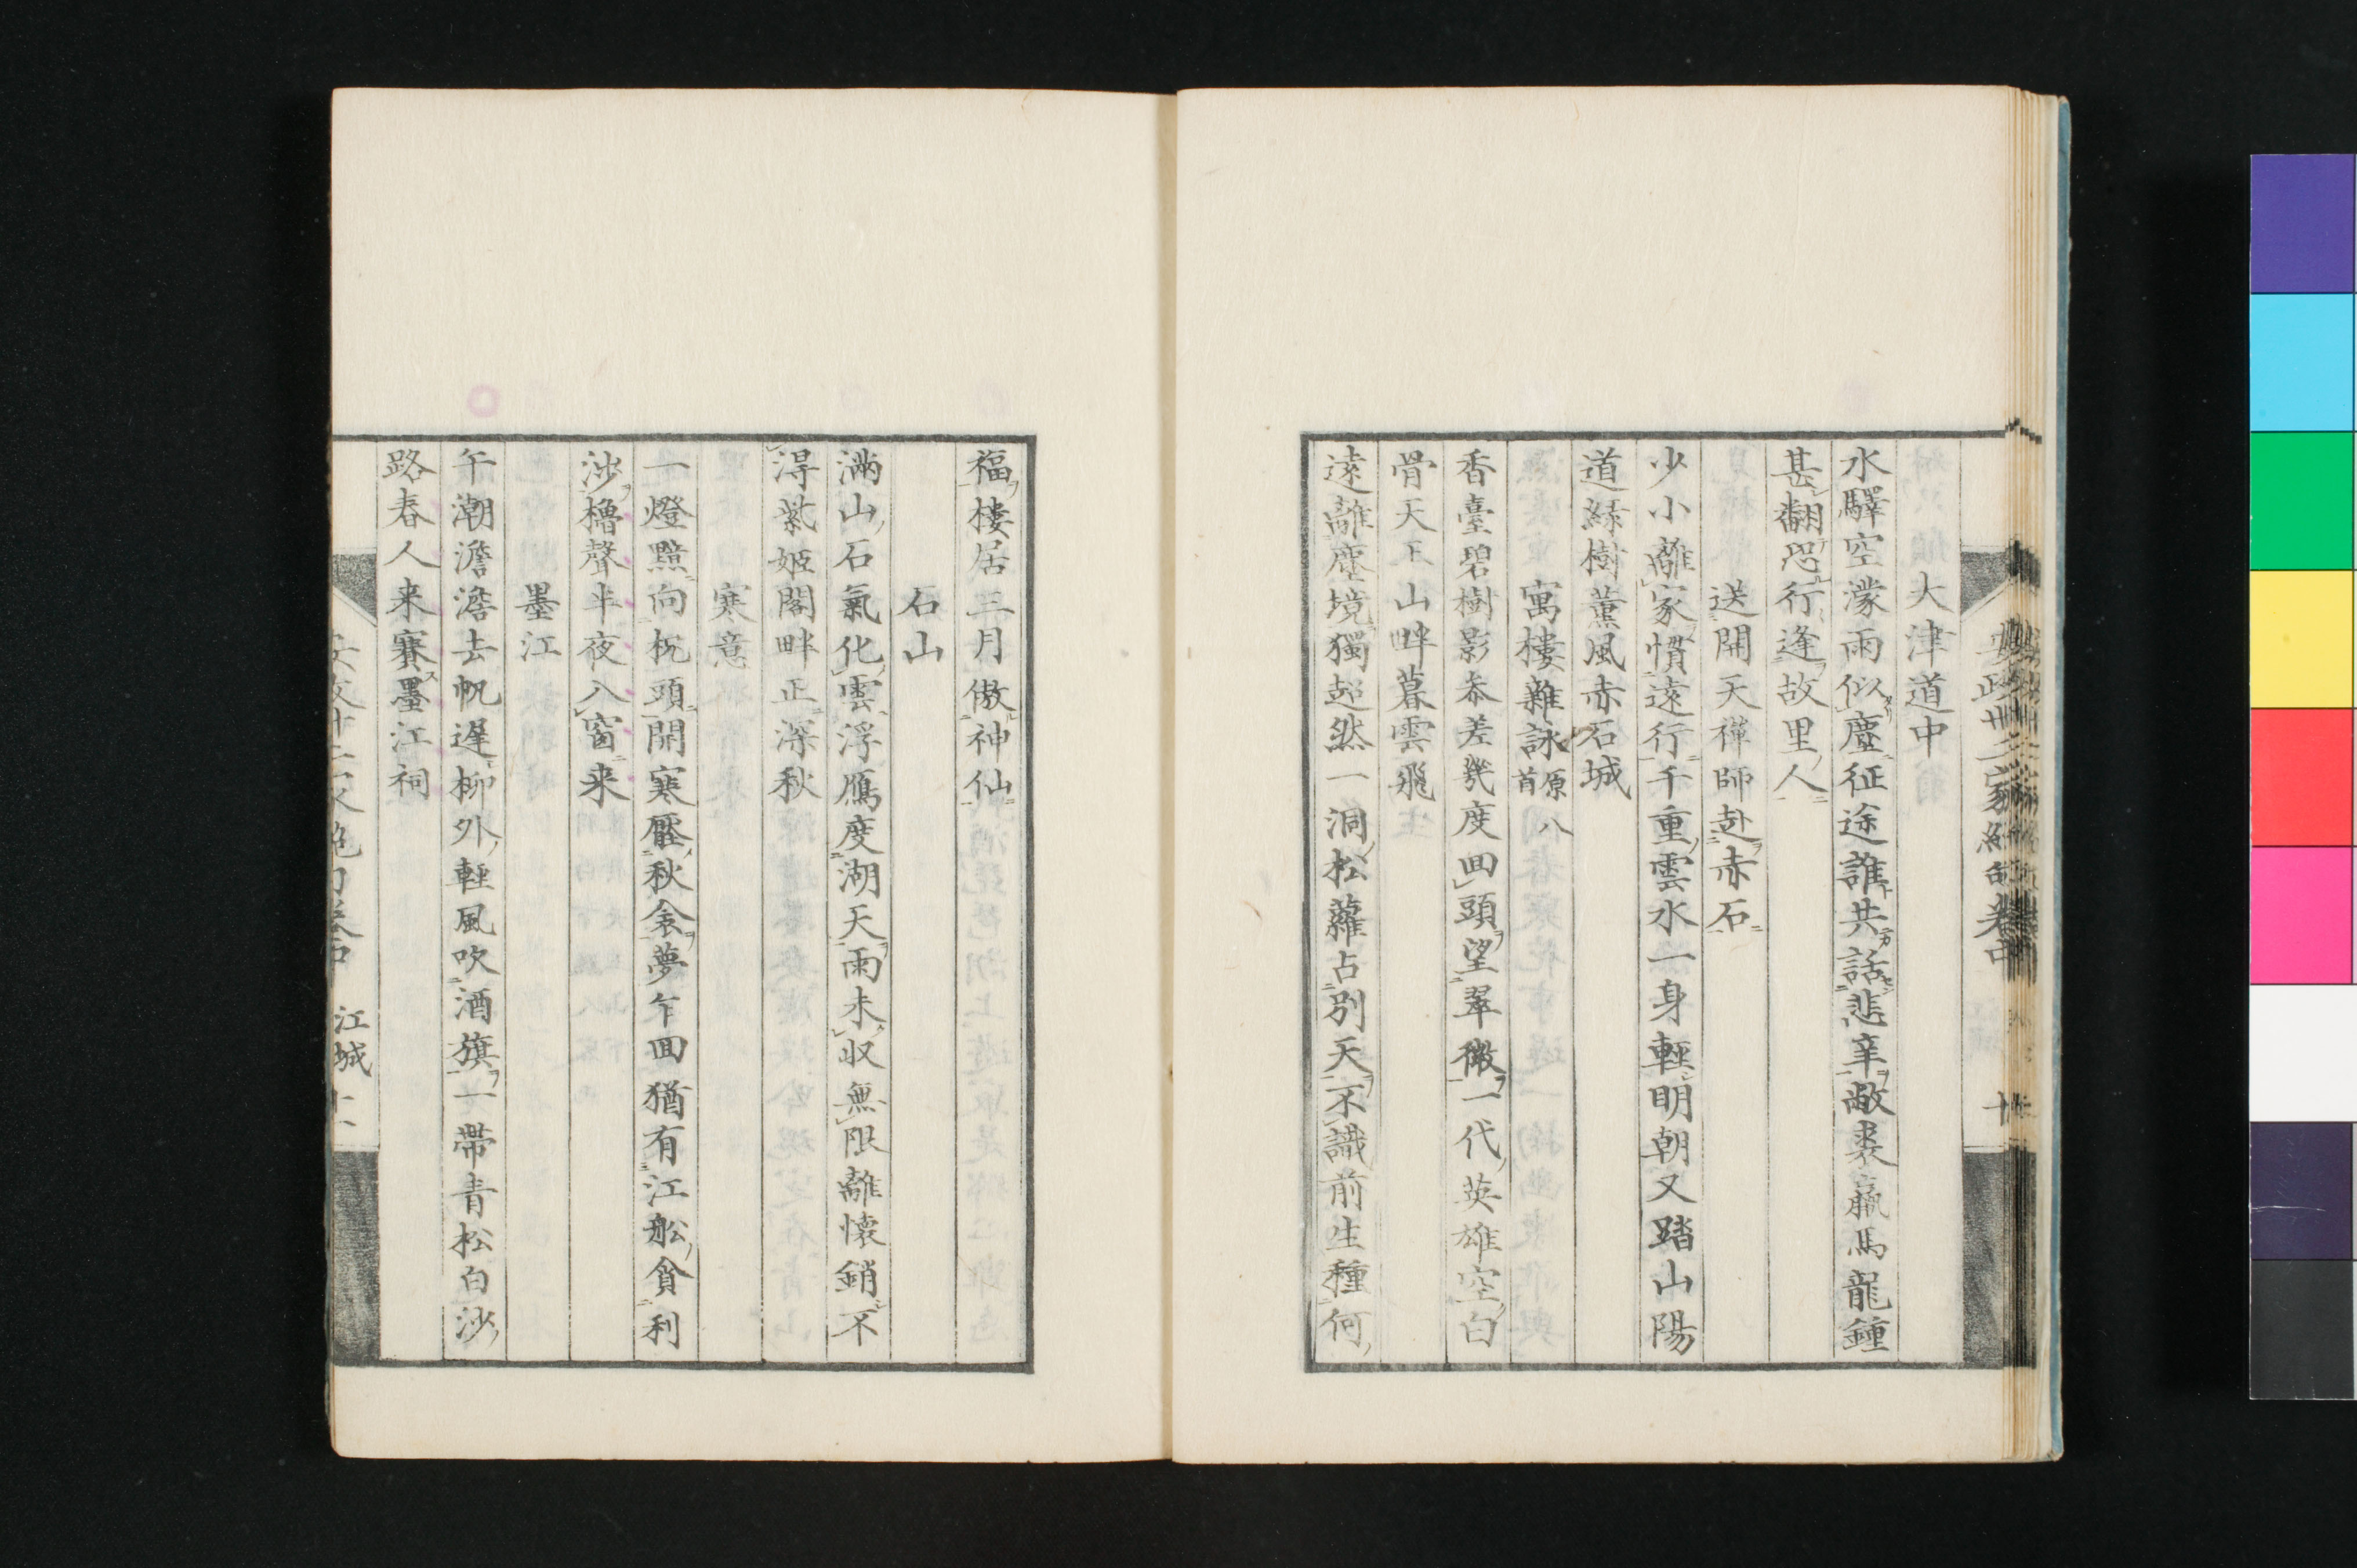 大津道中
水驛空濛雨似塵征途誰共話悲辛敝裘羸馬龍鍾
甚翻恐行逢故里人
送開天禪師赴赤石
少小離家慣遠行千重雲水一身輕明朝又踏山陽
道綠樹薰風赤石城
寓樓雜詠原八首
香臺碧樹影叅差幾度回頭望翠微一代英雄空白
骨天王山畔暮雲飛
遠離塵境獨超然一洞松蘿占別天不識前生種何
福樓居三月傲神仙
石山
滿山石氣化雲浮鴈度湖天雨未收無限離懷銷不
淂紫姬閣畔正深秋
寒意
一燈㸃向枕頭開寒壓秋衾夢乍回猶有江舩貪利
涉櫓聲半夜入窗来
墨江
午潮澹澹去帆遲柳外輕風吹酒旗一帶青松白沙
路春人来賽墨江祠
江城 十一